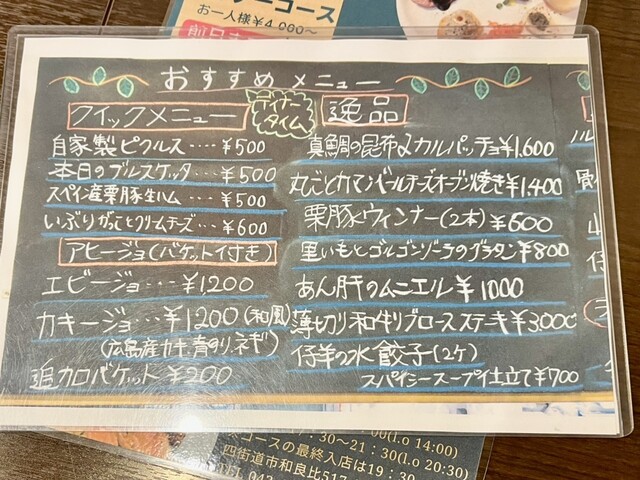 コース
お一人様¥4,000〜
おすすめメニュー
クイックメニュー
ディナータイム
自家製ピクルス‥‥¥500
本日のブルスケッタ‥‥¥500
スペイン産栗豚生ハム‥‥¥500
いぶりがっことクリームチーズ‥¥600
アヒージョ(バケット付き)
エビージョ‥‥¥1,200
カキージョ‥‥¥1200(和風)
(広島産カキ青のり、ネギ)
追加バケット‥‥¥200
逸品
真鯛の昆布〆カルパッチョ¥1,600
丸ごとカマンベールチーズオーブン焼き¥1,400
栗豚ウィンナー(2本)¥600
里いもとゴルゴンゾーラのグラタン¥800
あん肝のムニエル¥1000
薄切り和牛リブロースステーキ¥3,000
仔羊の水餃子(2ケ)
スパイシースープ仕立て¥700
(l.o 14:00)
:30〜21:30(l.o 20:30)
コースの最終入店は19:30
四街道市和良比517